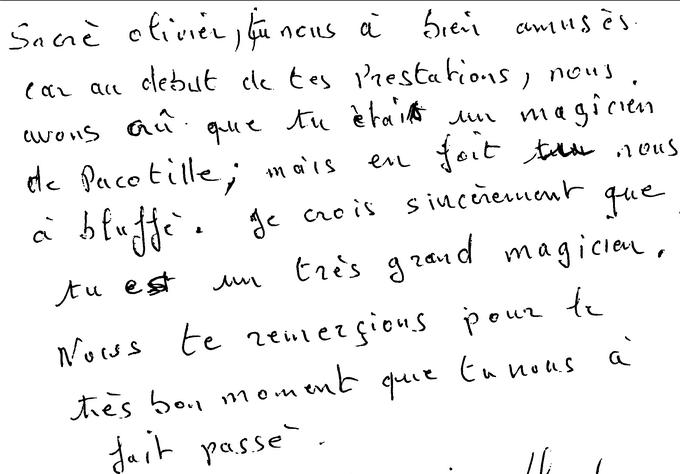 Sacrè olivièr, tu nous à bien amusès.
car au debut de tes Prestations, nous
avons crû que tu ètait un magicien
de Pacotille; mais en fait nous
à bluffè. Je crois sincèrement que
tu est un très grand magicien.
Nous te remerçions pour le
très bon moment que tu nous à
fait passè.